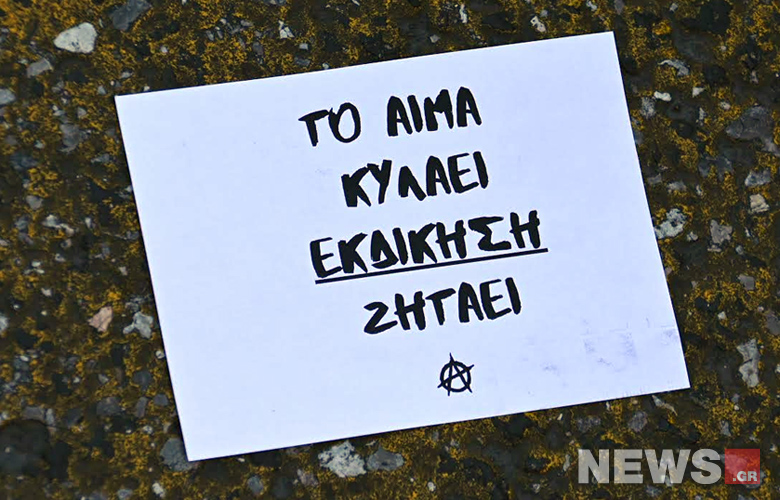 ΤΟ ΑΙΜΑ
ΚΥΛΑΕΙ
ΕΚΔΙΚΗΣΗ
ΖΗΤΑΕΙ
NEWS.GR